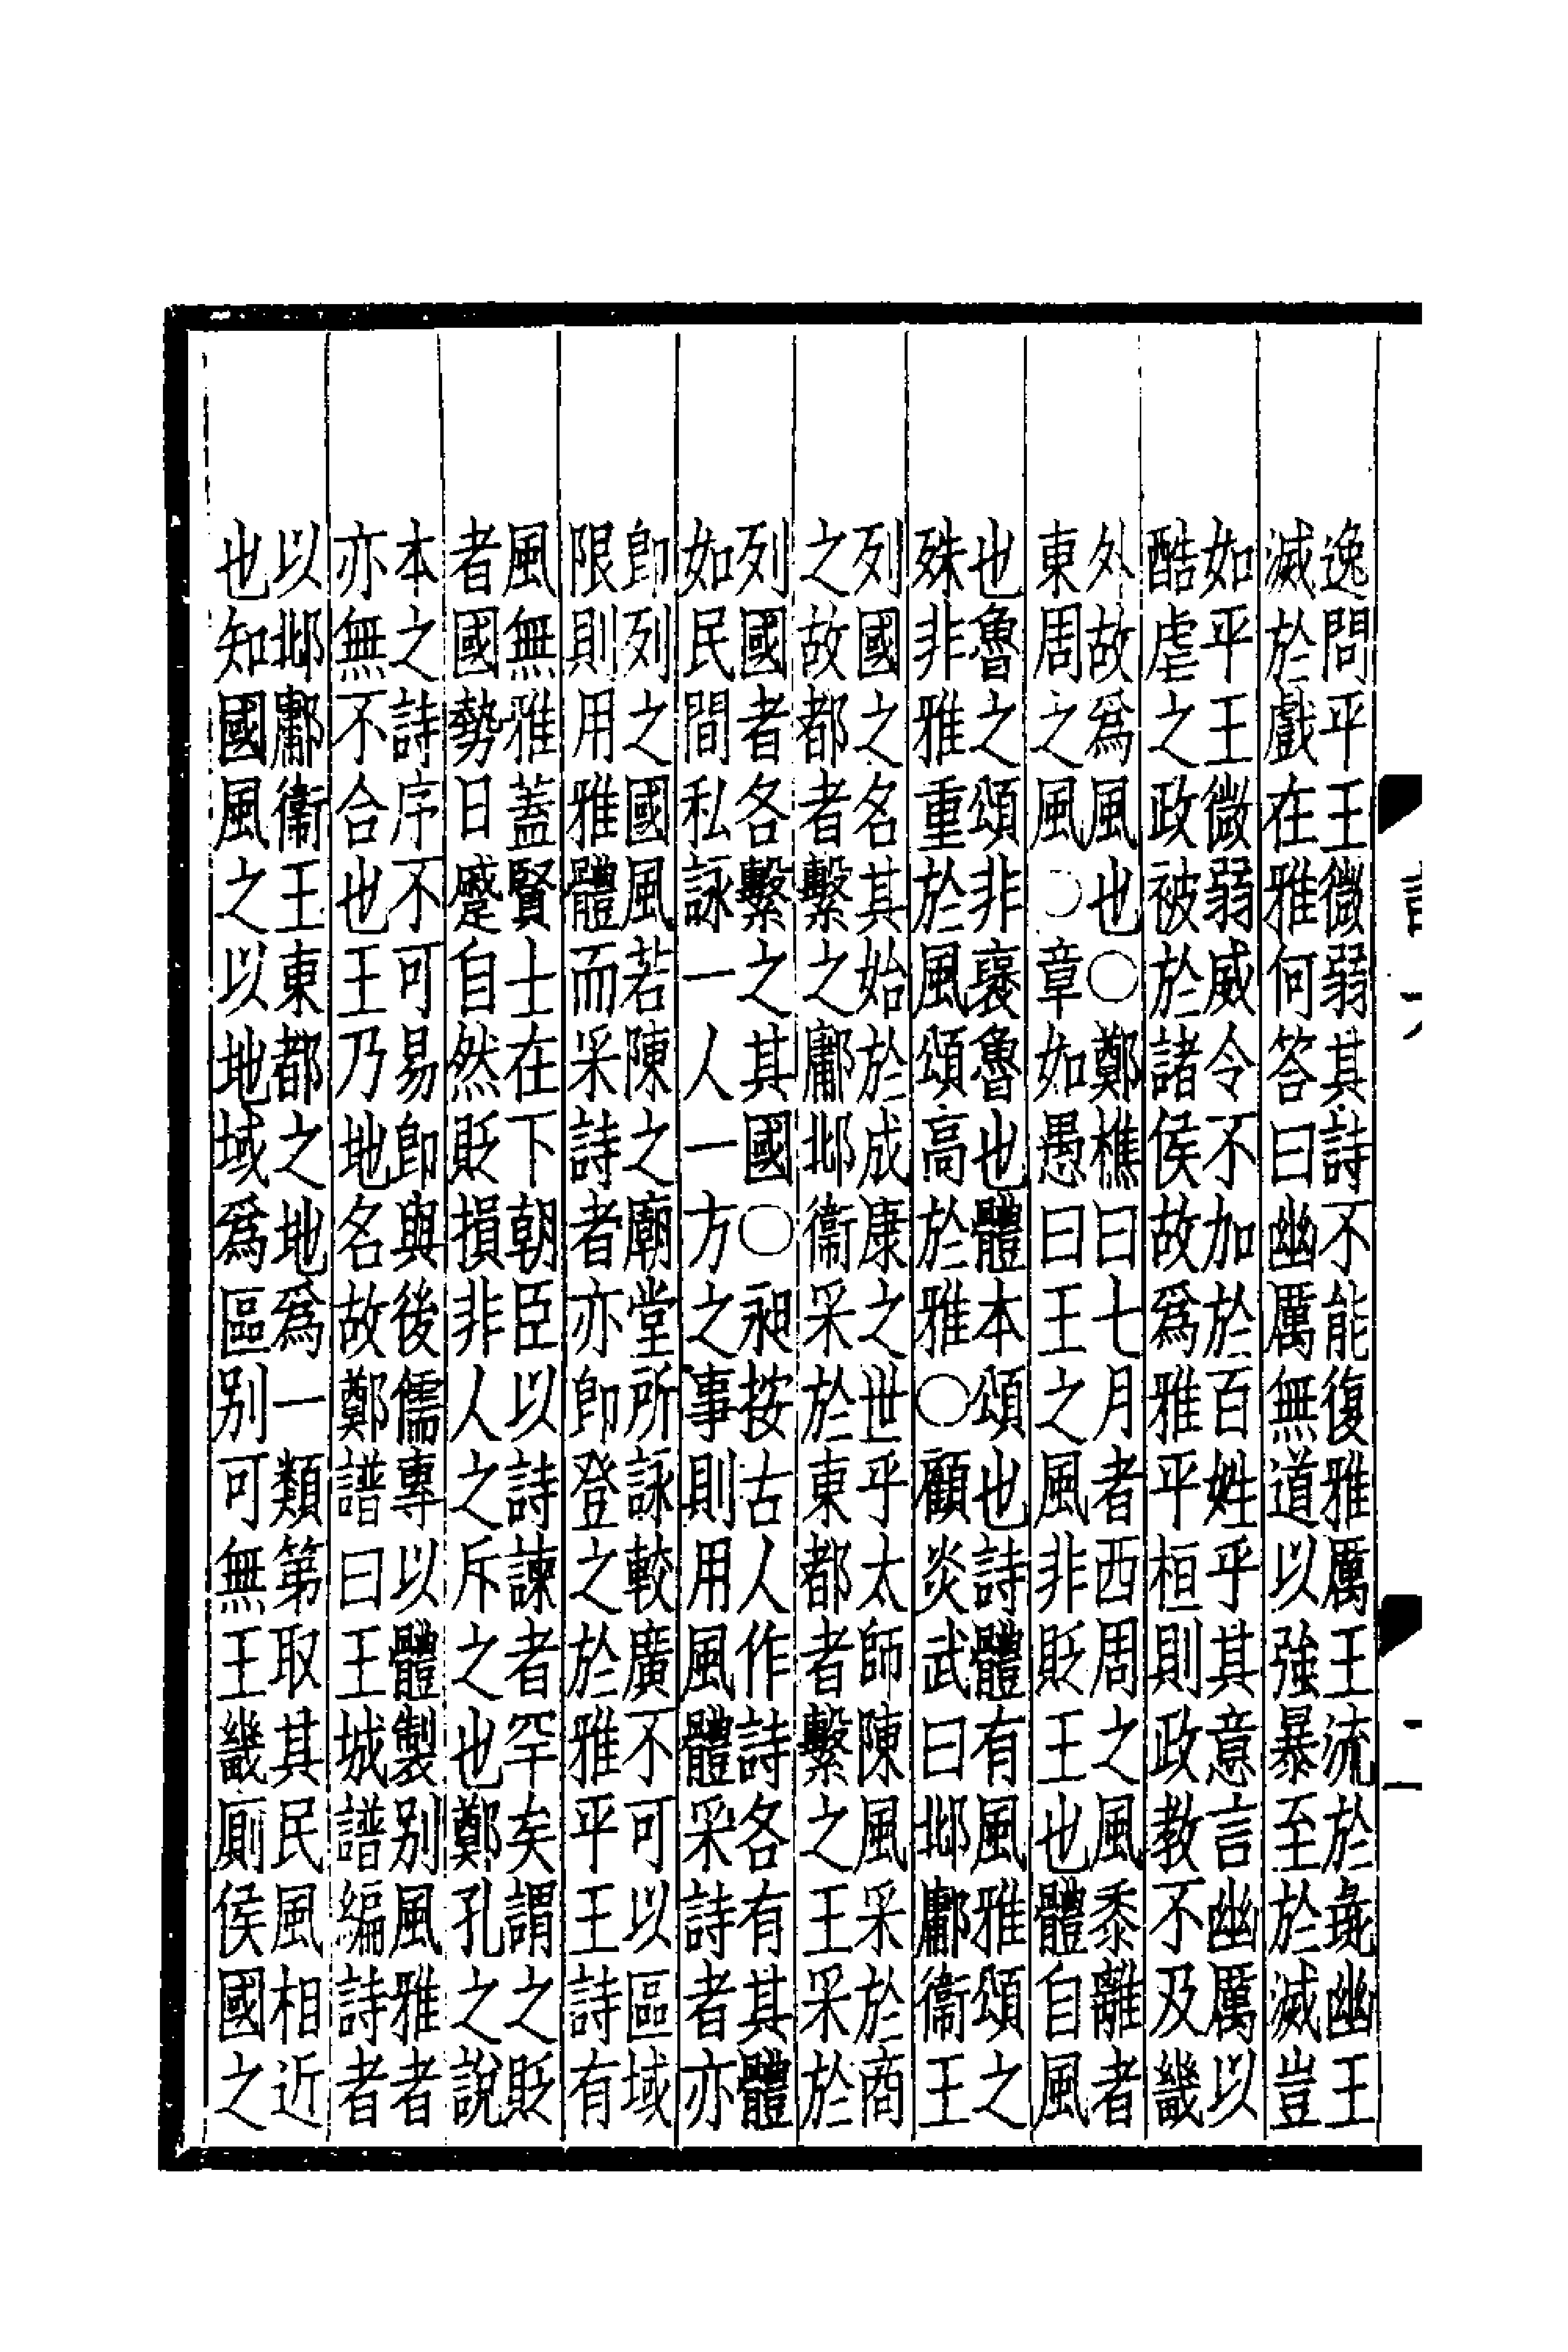 逸問平王微弱其詩不能復雅厲王流於彘幽王
滅於戲在雅何答曰幽厲無道以強暴至於滅豈
如平王微弱威令不加於百姓乎其意言幽厲以
酷虐之政被於諸侯故爲雅平桓則政教不及畿
外故爲風也○鄭樵曰七月者西周之風黍離者
東周之風○章如愚曰王之風非貶王也體自風
也魯之頌非襃魯也體本頌也詩體有風雅頌之
殊非雅重於風頌高於雅○顧炎武曰邶鄘衞王
列國之名其始於成康之世乎太師陳風采於商
之故都者繫之鄘邶衞采於東都者繫之王采於
列國者各繫之其國○昶按古人作詩各有其體
如民間私詠一人一方之事則用風體采詩者亦
卽列之國風若陳之廟堂所詠較廣不可以區域
限則用雅體而采詩者亦卽登之於雅平王詩有
風無雅蓋賢士在下朝臣以詩諫者罕矣謂之貶
者國勢日蹙自然貶損非人之斥之也鄭孔之說
本之詩序不可易卽與後儒專以體製别風雅者
亦無不合也王乃地名故鄭譜曰王城譜編詩者
以邶鄘衞王東都之地爲一類第取其民風相近
也知國風之以地域爲區别可無王畿廁侯國之